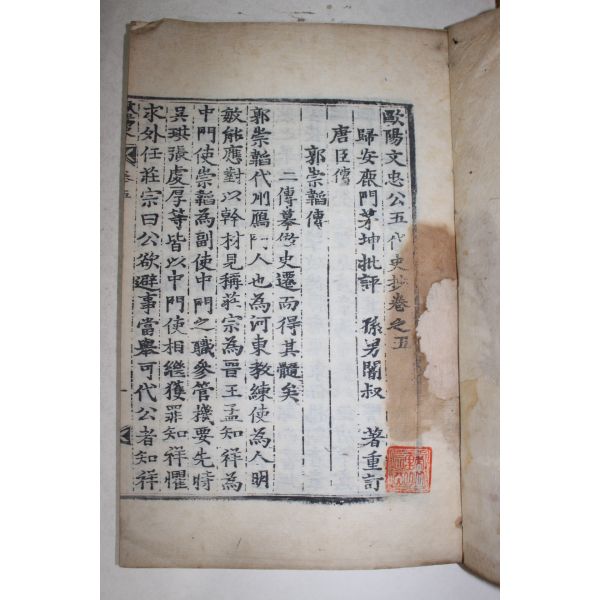 歐陽文忠公五代史抄卷之五
歸安鹿門茅坤批評 孫男闇叔 著重訂
唐臣傳
郭崇韜傳
二傳摹倣史遷而得其髓矣
郭崇韜代州鴈門人也為河東教練使為人明
敏能應對以幹材見稱莊宗為晉王孟知祥為
中門使崇韜為副使中門之職參管機要先時
吳珙張虔厚等皆以中門使相繼獲罪知祥懼
求外任莊宗曰公欲避事當舉可代公者知祥
卷五